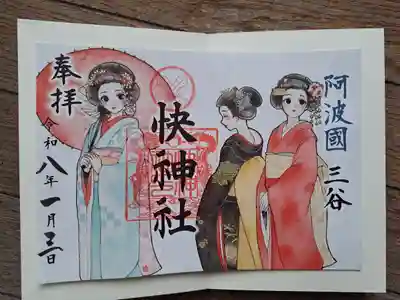 阿波國 三谷
快神社
奉拝
令和八年一月三日